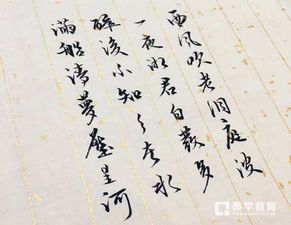 西风吹老洞庭波
一夜湘君白髮多
醉後不知天在水
滿船清夢壓星河
秦学教育